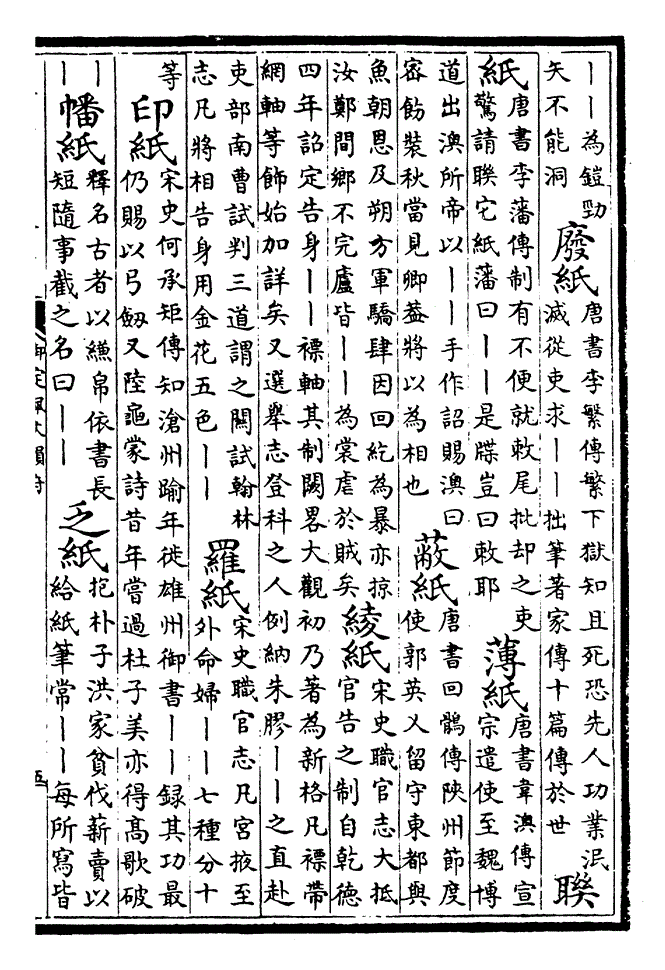 ――為鎧勁
矢不能洞
廢紙
唐書李繁傳繁下獄知且死恐先人功業泯
滅從吏求――拙筆著家傳十篇傳於世
聨
紙
唐書李藩傳制有不便就敕尾批却之吏
驚請聨它紙藩曰――是牒豈曰敕耶
薄紙
唐書韋澳傳宣
宗遣使至魏博
道出澳所帝以――手作詔賜澳曰
密飭裝秋當見卿葢將以為相也
蔽紙
唐書回鶻傳陝州節度
使郭英乂留守東都與
魚朝恩及朔方軍驕肆因回紇為暴亦掠
汝鄭間鄉不完廬皆――為裳虐於賊矣
綾紙
宋史職官志大抵
官告之制自乾德
四年詔定告身――褾軸其制闕畧大觀初乃著為新格凡褾帶
網軸等飾始加詳矣又選舉志登科之人例納朱膠――之直赴
吏部南曹試判三道謂之闗試翰林
志凡將相告身用金花五色――
羅紙
宋史職官志凡宫掖至
外命婦――七種分十
等
印紙
宋史何承矩傳知滄州踰年徙雄州御書――録其功最
仍賜以弓劔又陸龜蒙詩昔年嘗過杜子美亦得髙歌破
――
幡紙
釋名古者以縑帛依書長
短隨事截之名曰――
乏紙
抱朴子洪家貧伐薪賣以
給紙筆常――每所寫皆